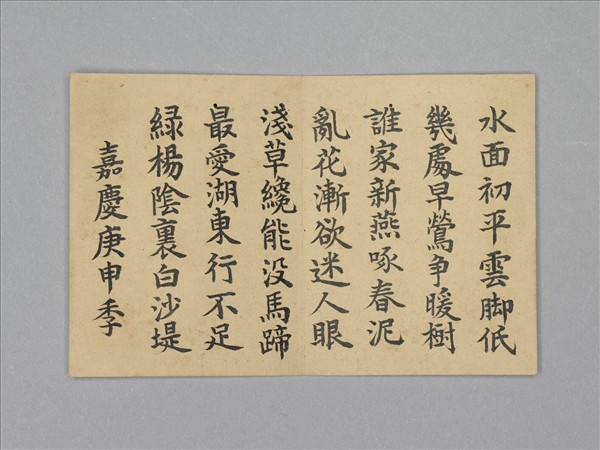 水面初平雲脚低
幾處早鶯争暖樹
誰家新燕啄春泥
亂花漸欲迷人眼
淺草纔能没馬蹄
最愛湖東行不足
緑楊陰裏白沙堤
嘉慶庚申季